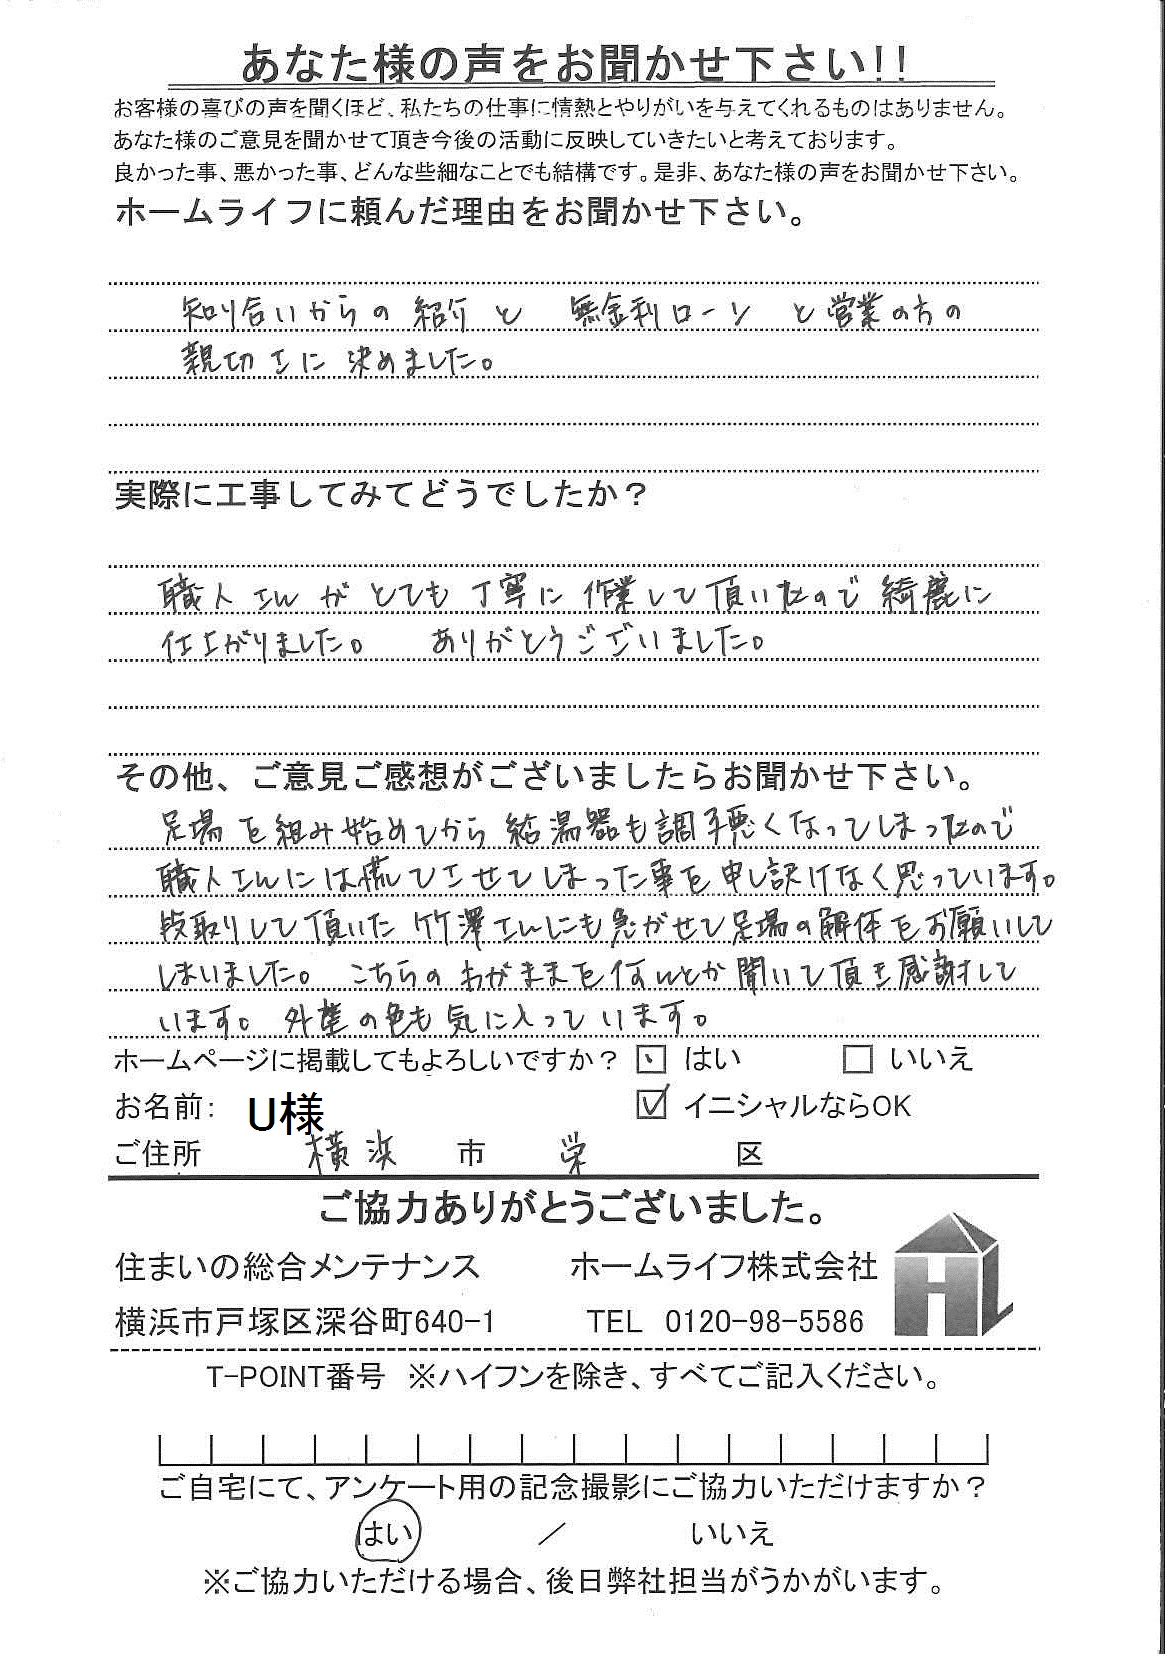 あなた様の声をお聞かせ下さい!!
お客様の喜びの声を聞くほど、私たちの仕事に情熱とやりがいを与えてくれるものはありません。
あなた様のご意見を聞かせて頂き今後の活動に反映していきたいと考えております。
良かった事、悪かった事、どんな些細なことでも結構です。是非、あなた様の声をお聞かせ下さい。
ホームライフに頼んだ理由をお聞かせ下さい。
知り合いからの紹介と 無金利ローン と営業の方の
親切さに決めました。
実際に工事してみてどうでしたか？
職人さんがとても丁寧に作業して頂いたので綺麗に
仕上がりました。 ありがとうございました。
その他、ご意見ご感想がございましたらお聞かせ下さい。
足場を組み始めてから給湯器も調子悪くなってしまったので
職人さんには慌てさせてしまった事を申し訳けなく思っています。
段取りして頂いた竹澤さんにも急がせて足場の解体をお願いして
しまいました。こちらのわがままを何んとか聞いて頂き感謝して
います。外壁の色も気に入っています。
ホームページに掲載してもよろしいですか？ はい いいえ
お名前： U様 イニシャルならOK
ご住所 横浜 市 栄 区
ご協力ありがとうございました。
住まいの総合メンテナンス ホームライフ株式会社
横浜市戸塚区深谷町640-1 TEL 0120-98-5586
HL
T-POINT番号 ※ハイフンを除き、すべてご記入ください。
ご自宅にて、アンケート用の記念撮影にご協力いただけますか？
はい ／ いいえ
※ご協力いただける場合、後日弊社担当がうかがいます。